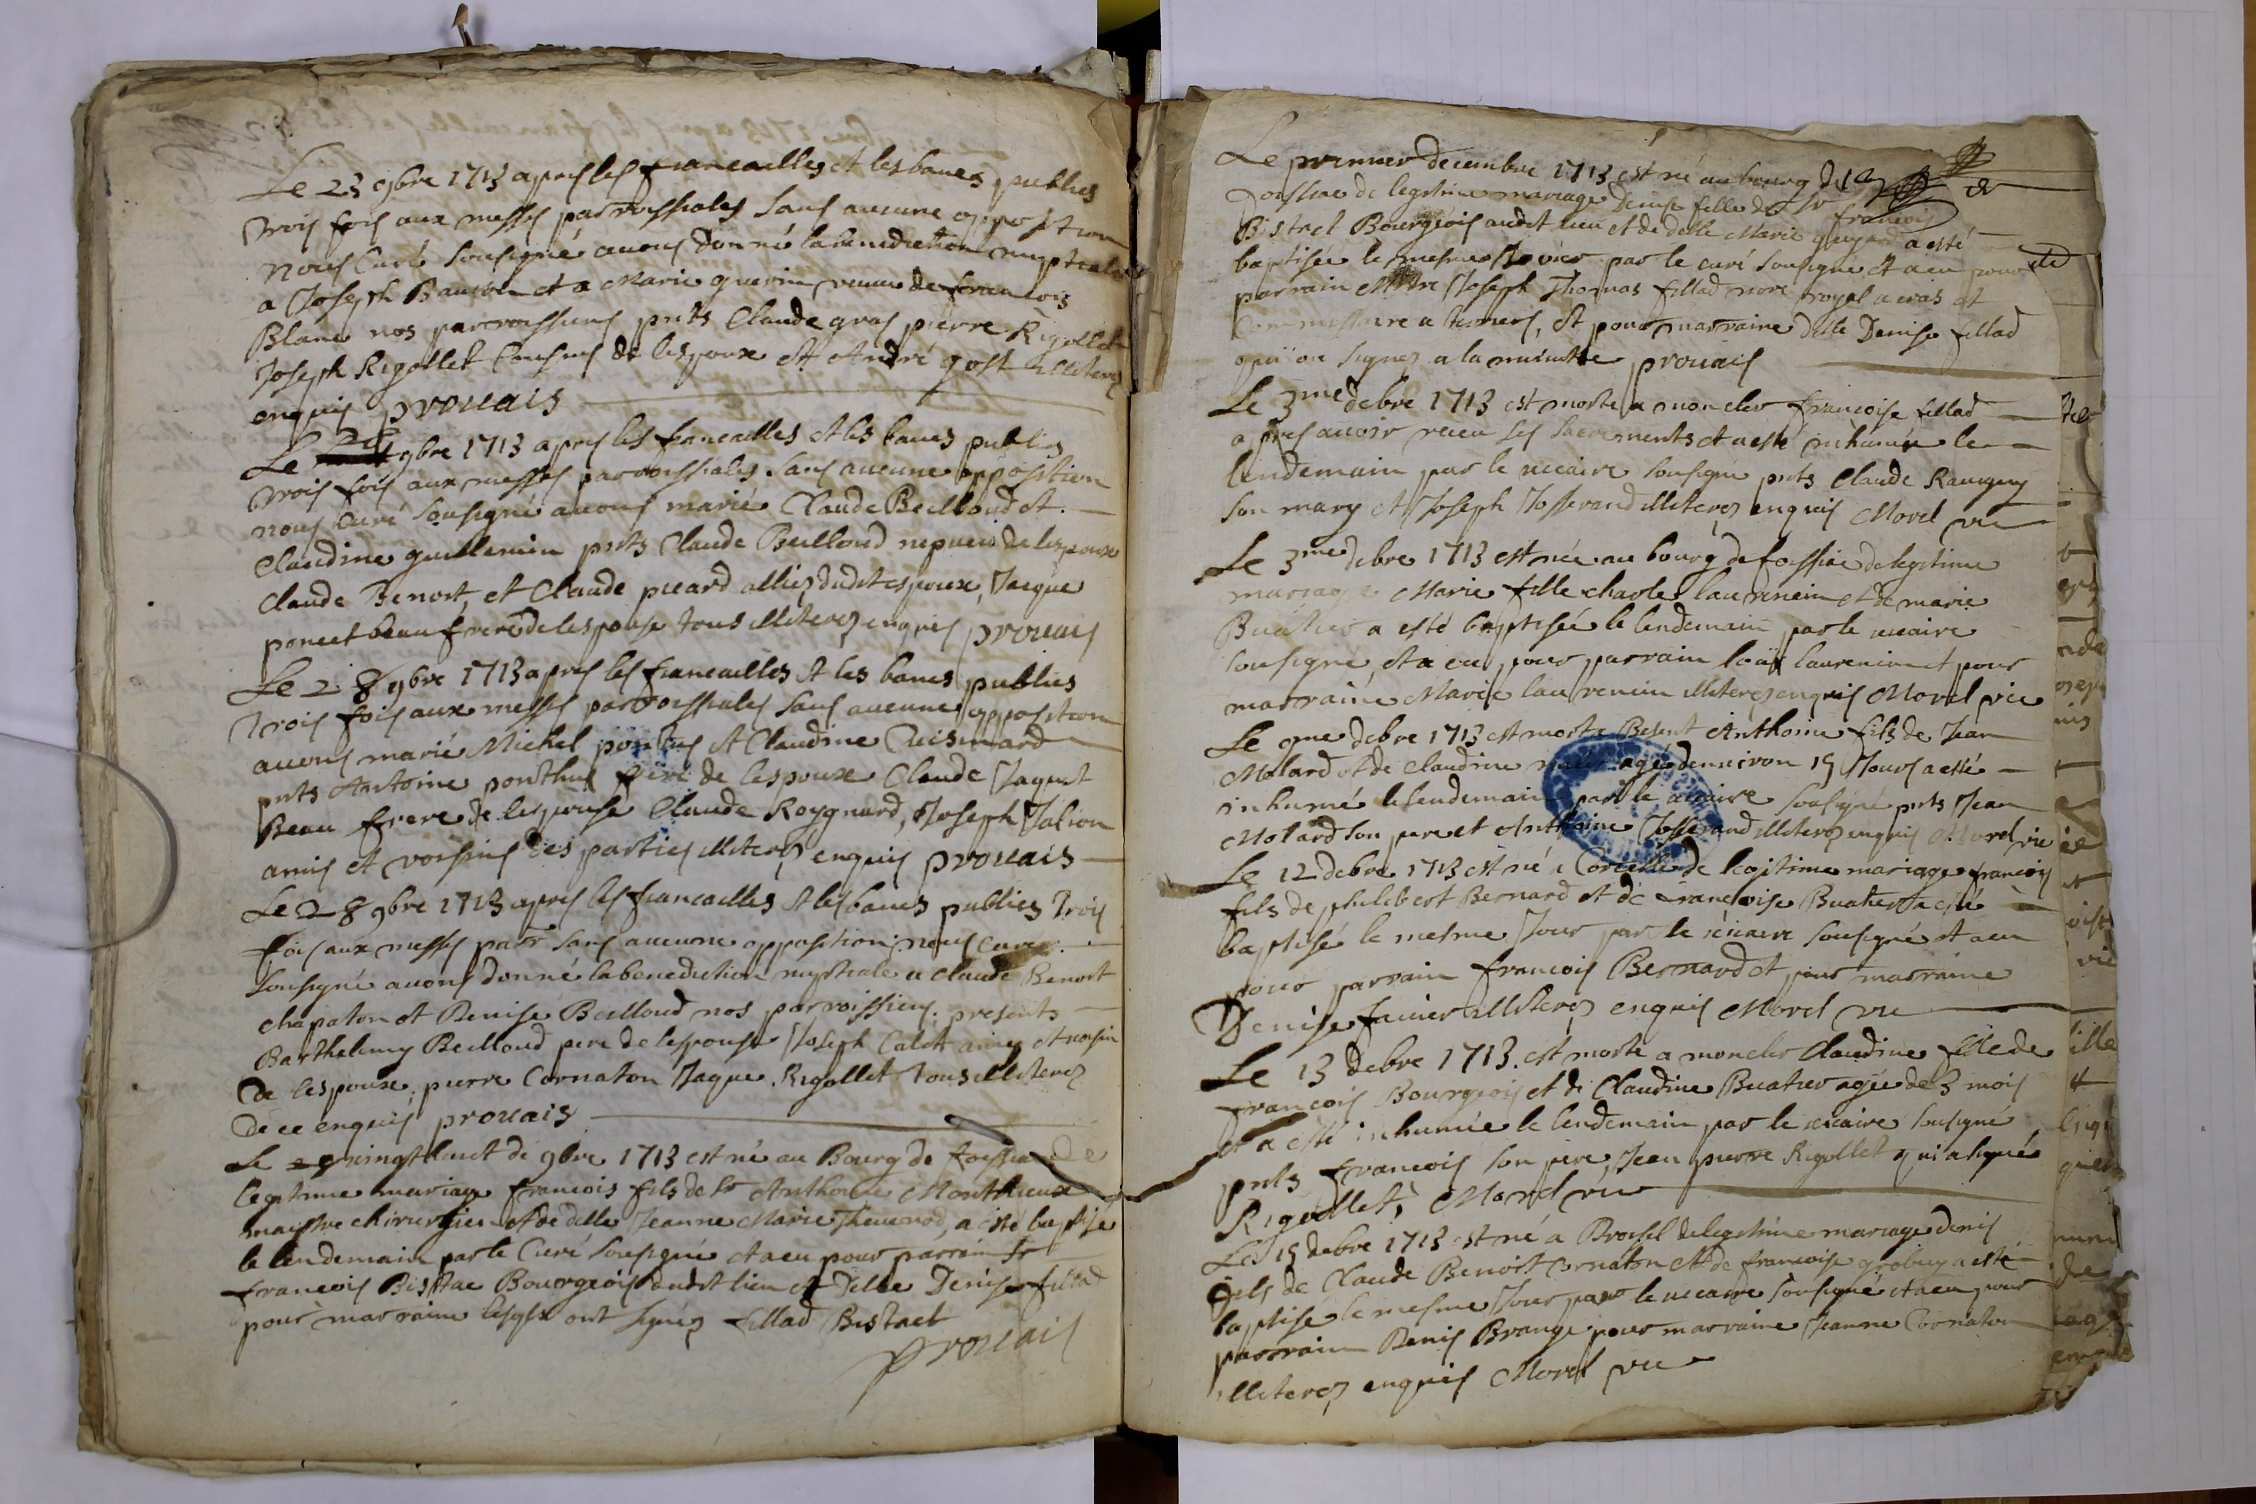 Le 23 9bre 1713 apres les fiancailles et les bancs publies
trois fois aux messes parroissiales sans aucune opposition
nous Curé sousigné auons donné la benediction nuptiale
a Joseph et a Marie guerin veuue de francois
Blanc nos parroissiens pnts Claude gras pierre Rigollet
Joseph Rigollet Cousins de lespoux et André gost illiterez
enquis prouais
Le 28 9bre 1713 apres les fiancailles et les bancs publies
trois fois aux messes parroissiales sans aucune opposition
nous Curé sousigné auons marié Claude Beilloud et
Claudine guillemin pnts Claude Beilloud nepueu de lespoux
Claude Benoit, et Claude picard alliez dudit espoux, Jaque
poncet beau frere de lespouse tous illiterez enquis prouais
Le 28 9bre 1713 apres les fiancailles et les bancs publies
trois fois aux messes parroissiales sans aucune opposition
auons marié Michel ponthus et Claudine
pnts Antoine ponthus frere de lespoux Claude Jaquet
Beau frere de lespouse Claude Roygnard, Joseph
amis et voisins des parties illiterez enquis prouais
Le 28 9bre 1713 apres les fiancailles et les bancs publies trois
fois aux messes parr sans aucune opposition nous Curé
sousigné auons donné la benediction nuptiale a Claude Benoit
Chapaton et Denise Beilloud nos parroissiens, presents
Barthelemy Beilloud pere de lespouse Joseph amy et voisin
de lespoux, pierre Cornaton Jaque Rigollet tous illiterez
de ce enquis prouais
Le vingthuit de 9bre 1713 est né au Bourg de foissia de
legitime mariage francois fils de Sr Anthoine Monthieux
maistre chirurgien et de delle Jeanne Marie , a esté baptisé
le lendemain par le Curé sousigné et a eu pour parrain Sr
francois Bistac Bourgeois dudit lieu et Delle Denise fillad
pour marraine lesqls ont signéz fillad Bistact
prouais
Le premier decembre 1713 est né au bourg de
foissiac de legitime mariage Denise fille de Sr francois
Bistact Bourgeois audit lieu et de delle Marie a esté
baptisée le mesme par le curé sousigné et a eu pour
parrain Mtre Joseph Thomas fillad nore royal a et
Commissaire a terriers, et pour marraine delle Denise fillad
qui on signez a la minutte prouais
Le 3me debre 1713 est morte a moncler francoise fillad
apres auoir receu ses sacrements et a esté inhumée le
lendemain par le vicaire sousigné pnts Claude
son mary et Joseph Josserand illiterez enquis Morel vic
Le 3me debre 1713 est née au bourg de foissiac de legitime
mariage Marie fille charle laurencin et de marie
Buatier a esté baptisée le lendemain par le vicaire
sousigné, et a eu pour parrain loüis laurencin et pour
marraine Marie laurencin illiterez enquis Morel vic
Le 9me debre 1713 est morte Benoit Anthoine fils de Jean
Molard et de Claudine agé denuiron 15 Jours a esté
inhumé le lendemain par le vicaire sousigné pnts Jean
Molard son pere et Anthoine Josserand illiterez enquis Morel vic
Le 12 debre 1713 est né a de legitime mariage francois
fils de philibert Bernard et de francoise Buatier a esté
baptisé le mesme Jour par le vicaire sousigné et a eu
pour parrain francois Bernard et pour marraine
Denise illiterez enquis Morel vic
Le 13 debre 1713 est morte a moncler Claudine fille de
francois Bourgeois et de Claudine Buatier agée de 3 mois
et a esté inhumée le lendemain par le vicaire sousigné
pnts francois son pere, Jean pierre Rigollet qui a signé
Rigollet, Morel vic
Le 15 debre 1713 est né a de legitime mariage denis
fils de Claude Benoist Cornaton et de francoise a esté
baptisé le mesme Jour par le vicaire sousigné et a eu pour
parrain Denis Brange pour marraine Jeanne Cornaton
illiterez enquis Morel vic